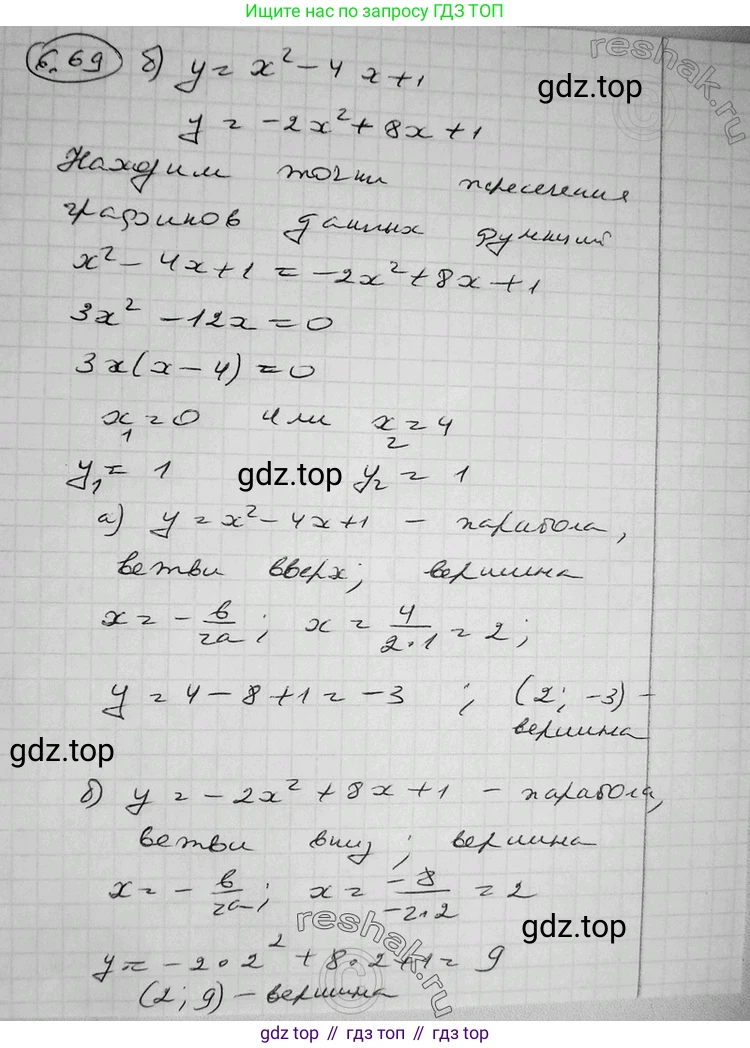 Ищите нас по запросу ГДЗ ТОП
6.69 б) y = x² - 4x + 1
gdz.top
y = -2x² + 8x + 1
reshak.ru
Находим точки пересечения
графиков данных функций
x² - 4x + 1 = -2x² + 8x + 1
3x² - 12x = 0
3x(x - 4) = 0
x₁ = 0 или x₂ = 4
y₁ = 1 gdz.top y₂ = 1
а) y = x² - 4x + 1 - парабола,
ветви вверх; вершина
x = - в/2а; x = 4/2·1 = 2;
y = 4 - 8 + 1 = -3 ; (2; -3) -
вершина
gdz.top
б) y = -2x² + 8x + 1 - парабола,
ветви вниз; вершина
x = - в/2а; x = -8/-2·2 = 2
reshak.ru
gdz.top
y = -2·2² + 8·2 + 1 = 9
(2; 9) - вершина
gdz.top // гдз топ // gdz.top